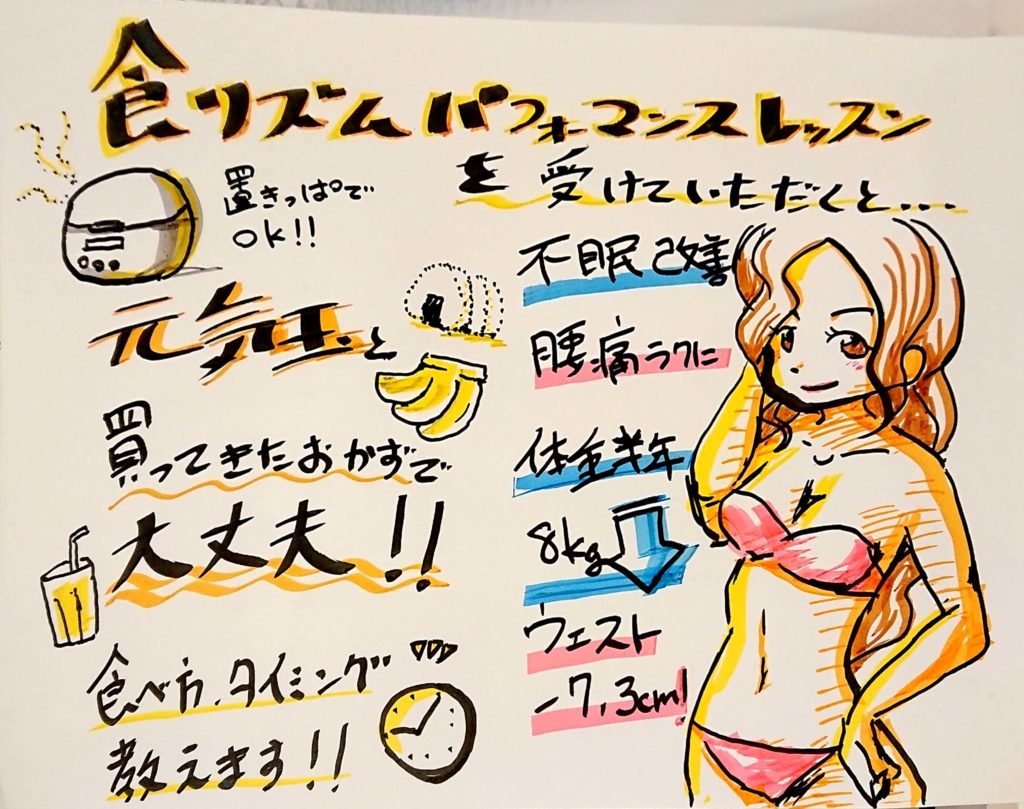 食リズムパフォーマンスレッスン
を受けていただくと....
置きっぱで
OK!!
元気玉と
買ってきたおかずで
大丈夫!!
食べ方、タイミング
教えます!!
不眠改善
腰痛ラクに
体重半年
8kg
ウェスト
-7.3cm!